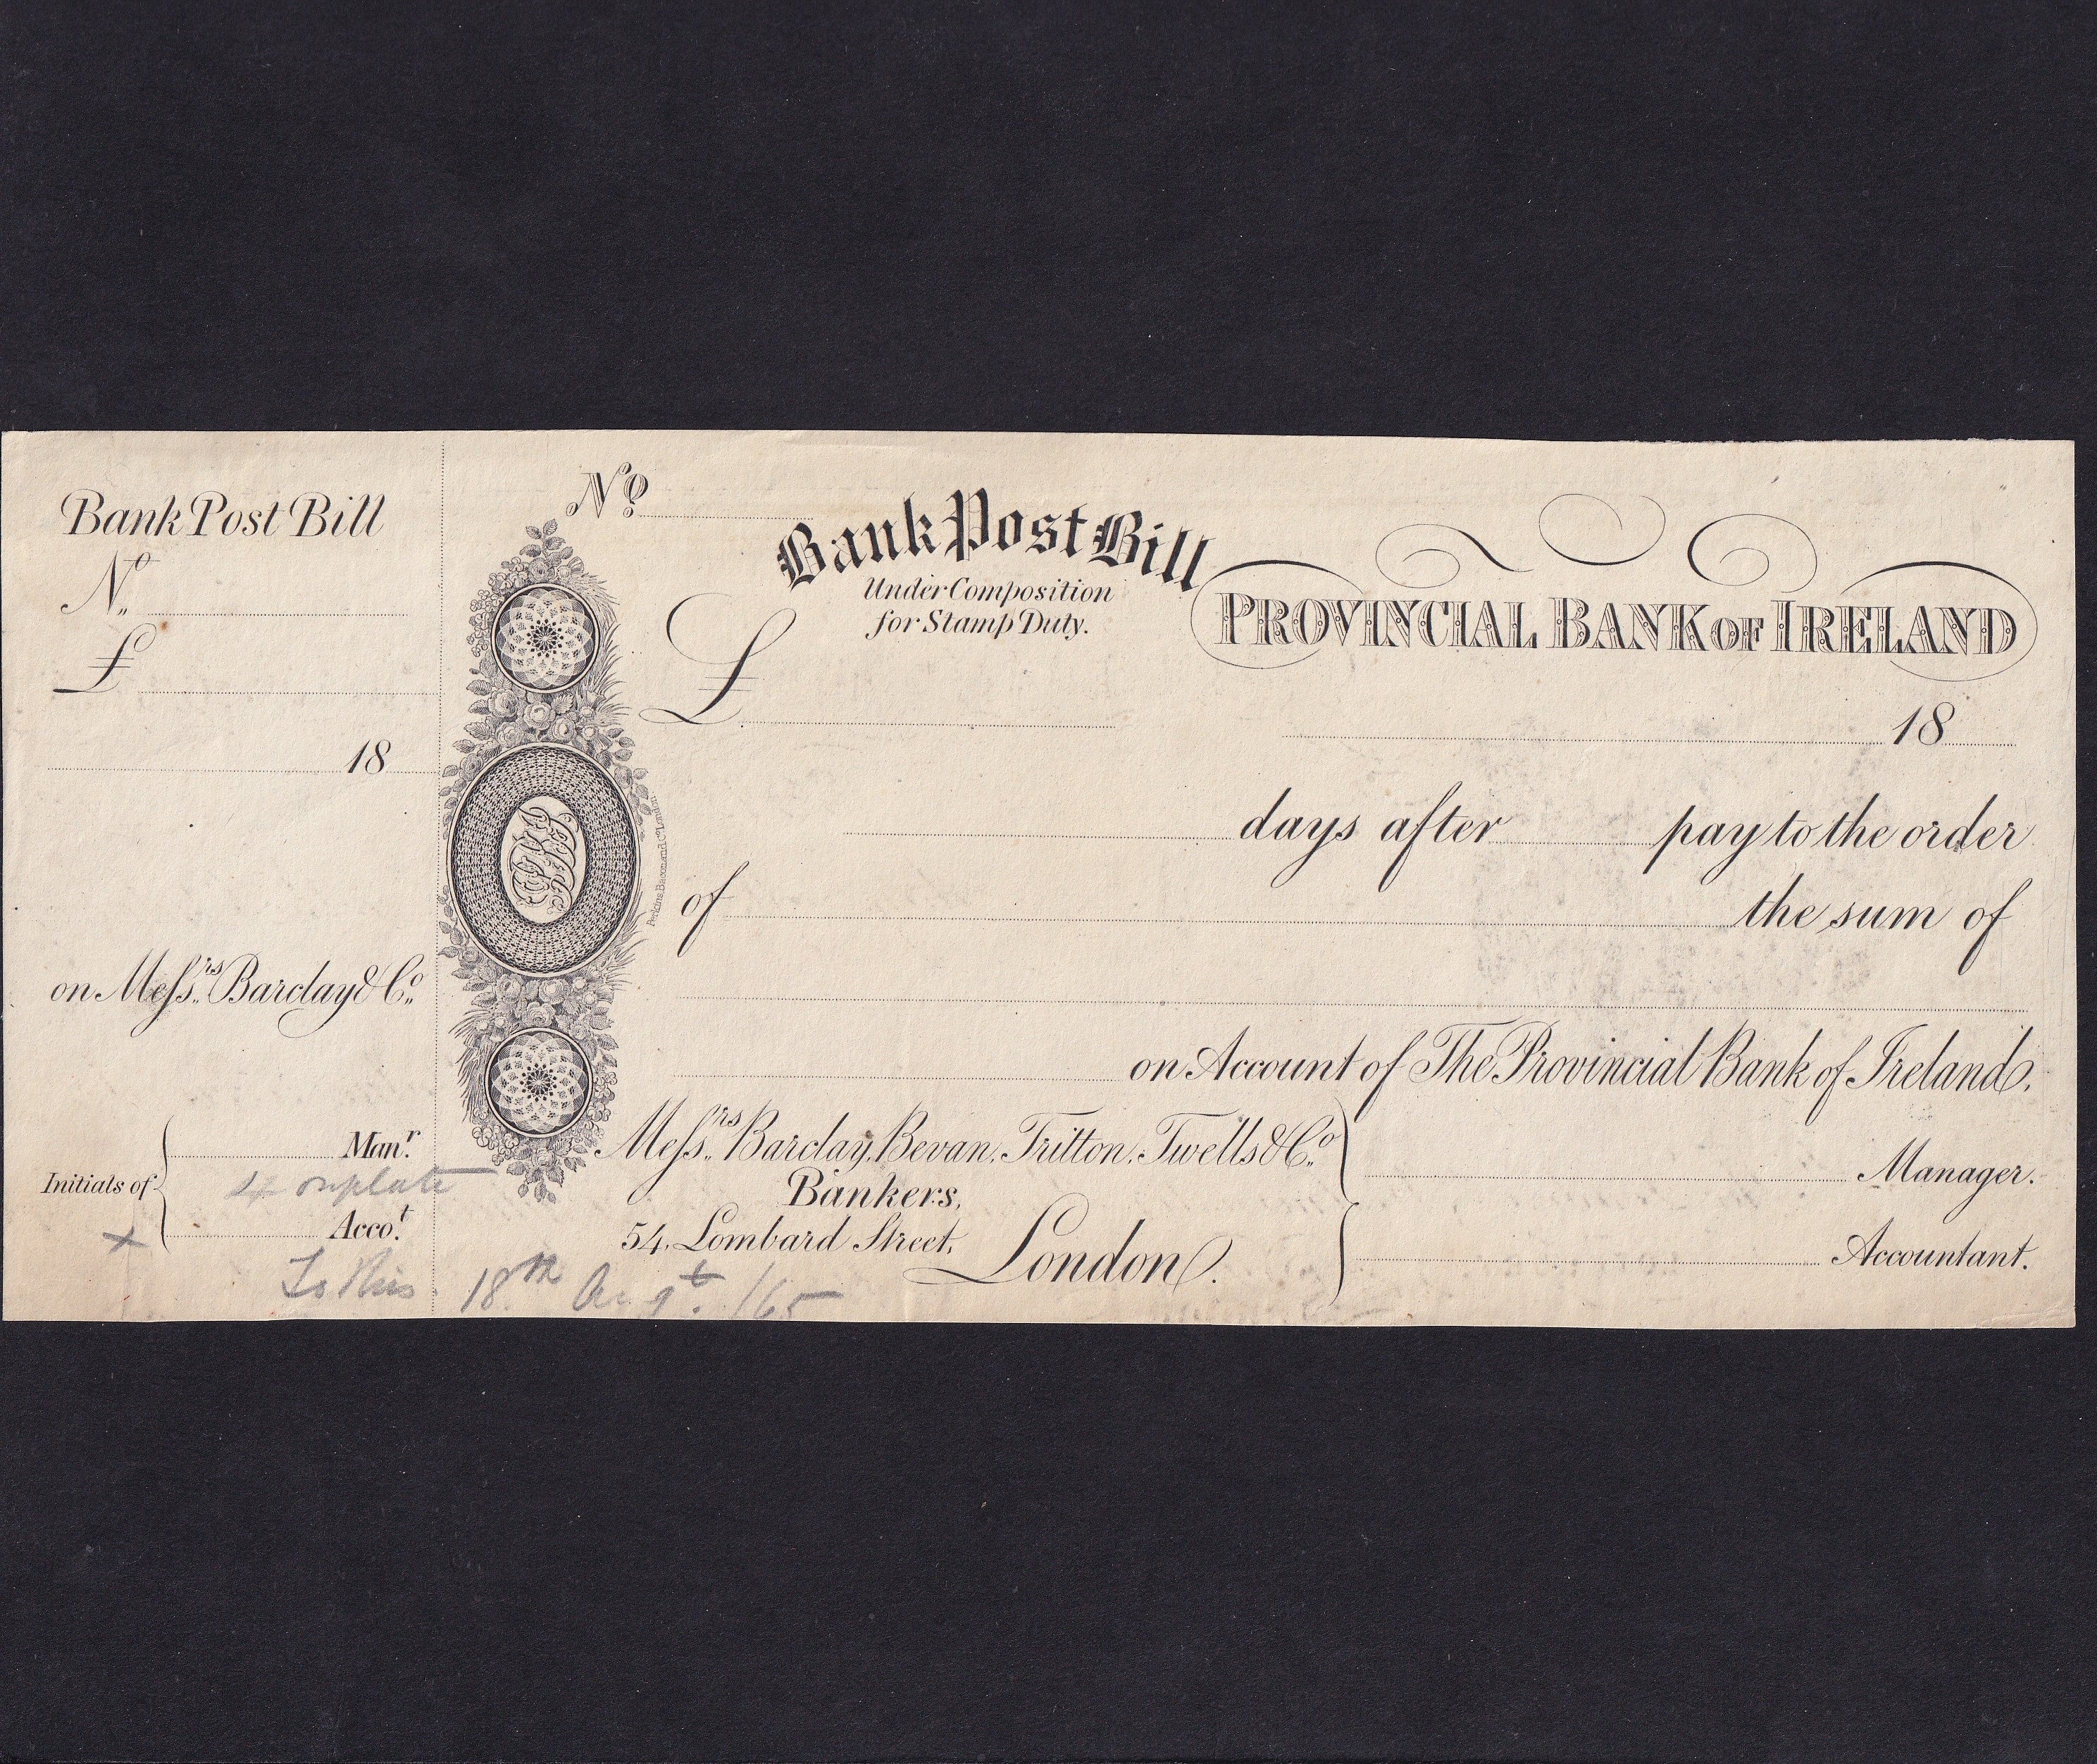 Bank Post Bill
No
£
18
on Messrs Barclay & Co.
Initials of
Manr.
4 on plate
Accot.
x
No
Bank Post Bill
Under Composition
for Stamp Duty.
PROVINCIAL BANK OF IRELAND
£
18
days after pay to the order
of the sum of
on Account of The Provincial Bank of Ireland.
Messrs Barclay, Bevan, Tritton, Twells & Co.
Bankers,
54, Lombard Street,
London.
Manager.
Accountant.
Perkins, Bacon and Co. London.
18th Augt. /65